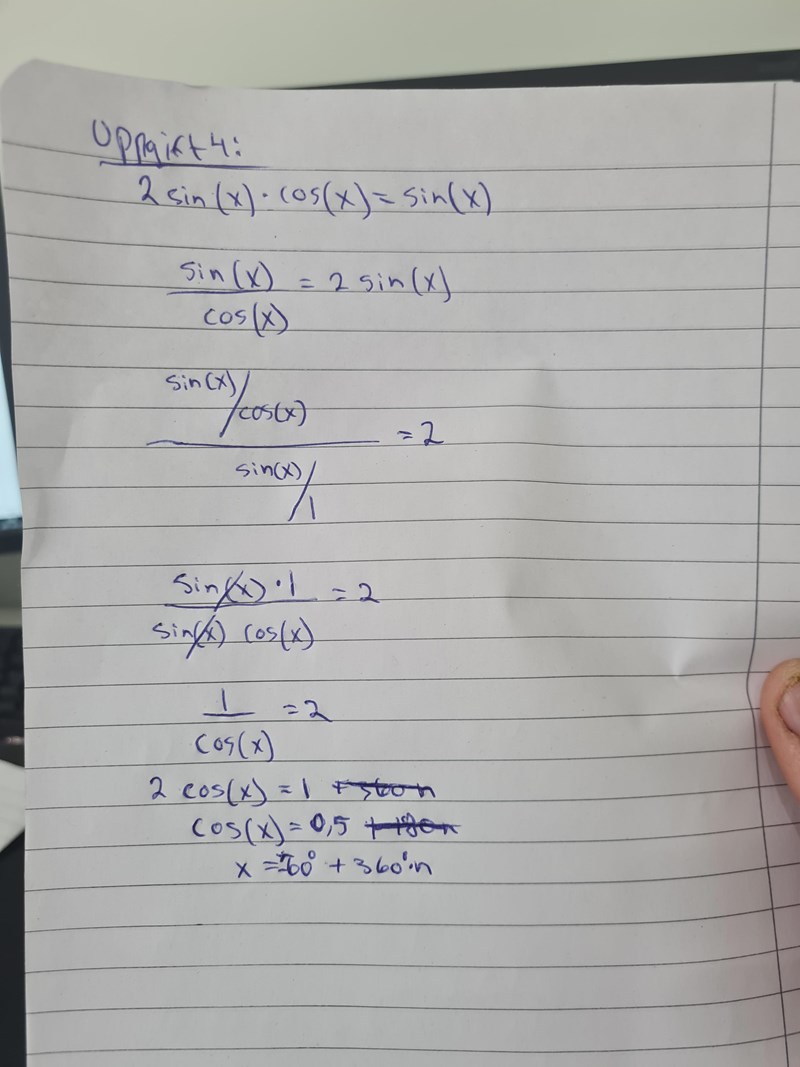 Uppgift 4:
2 sin(x) · cos(x) = sin(x)
sin(x) / cos(x) = 2 sin(x)
sin(x)/cos(x)
= 2
sin(x)/1
sin(x) · 1 / sin(x) cos(x) = 2
1 / cos(x) = 2
2 cos(x) = 1 + 360 n
cos(x) = 0,5 + 180 n
x = ±60° + 360°·n